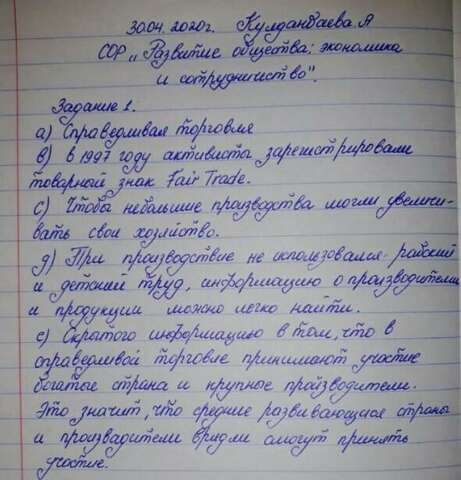 30.04.2020г. Кулданбаева.А
СОР „Развитие общества: экономика
и сотрудничество".
Задание 1.
а) Справедливая торговля
в) в 1997 году активисты зарегистрировали
товарный знак Fair Trade.
с) Чтобы небольшие производства могли увеличи-
вать свои хозяйство.
д) При производстве не использовался рабский
и детский труд, информацию о производителе
и продукции можно легко найти.
е) Скрытого информацию в том, что в
справедливой торговле принимают участие
богатые страна и крупные производители.
Это значит, что средние развивающиеся страны
и производители врядли смогут принять
участие.